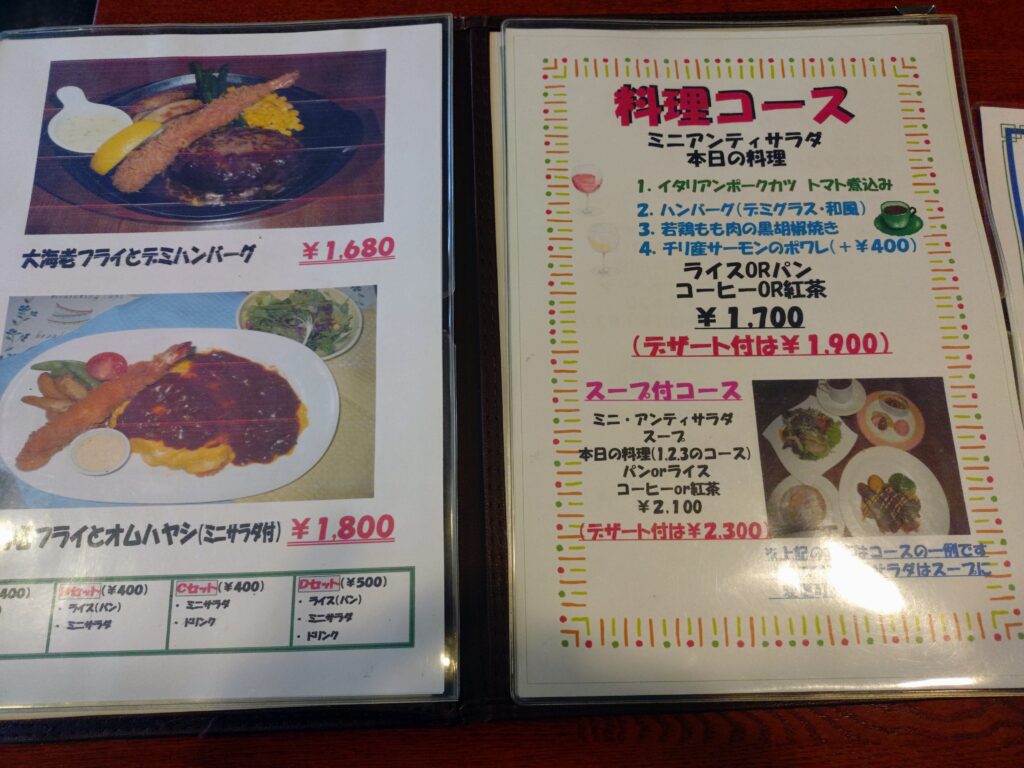 大海老フライとデミハンバーグ ￥1,680
フライとオムハヤシ(ミニサラダ付) ￥1,800
400)
Bセット(￥400)
・ ライス(パン)
・ ミニサラダ
Cセット(￥400)
・ ミニサラダ
・ ドリンク
Dセット(￥500)
・ ライス(パン)
・ ミニサラダ
・ ドリンク
料理コース
ミニアンティサラダ
本日の料理
1. イタリアンポークカツ トマト煮込み
2. ハンバーグ(デミグラス・和風)
3. 若鶏もも肉の黒胡椒焼き
4. チリ産サーモンのポワレ(＋￥400)
ライスORパン
コーヒーOR紅茶
￥1,700
(デザート付は￥1,900)
スープ付コース
ミニ・アンティサラダ
スープ
本日の料理(1.2.3のコース)
パンorライス
コーヒーor紅茶
￥2.100
(デザート付は￥2.300)
※上記の はコースの一例です
サラダはスープに